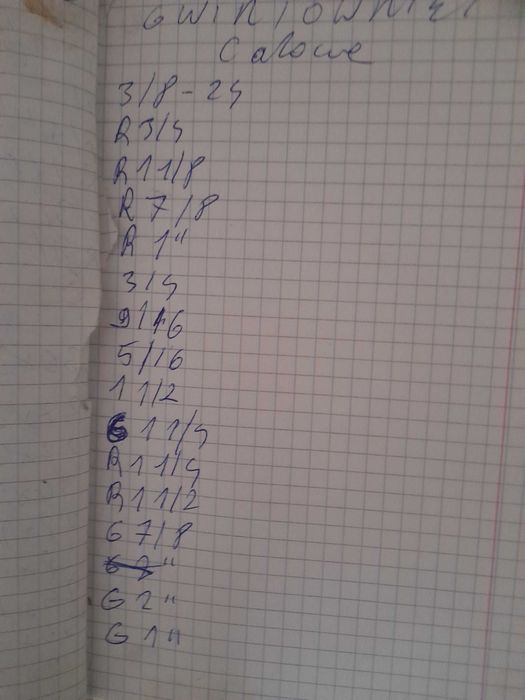 GWINTOWNIKI
Calowe
3/8 - 24
R 3/4
R 1 1/8
R 7/8
R 1"
3/4
9/16
5/16
1 1/2
G 1 1/4
R 1 1/4
R 1 1/2
G 7/8
G 2"
G 1"